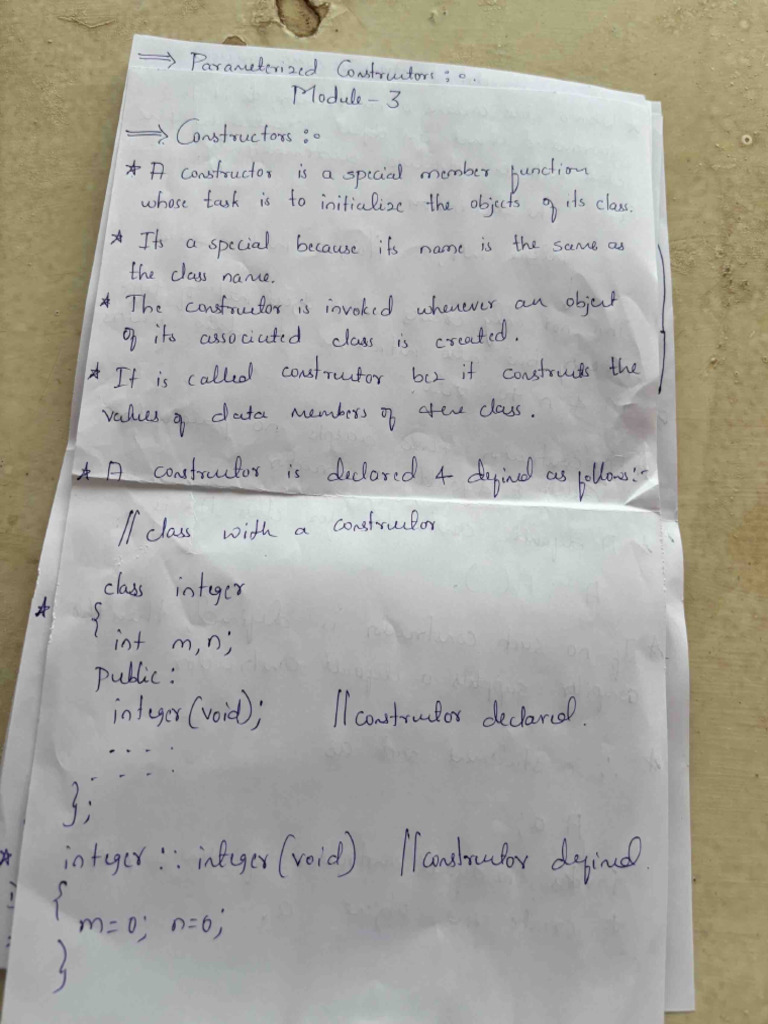 ⟹ Parameterized Constructors :-
Module - 3
⟹ Constructors :-
* A constructor is a special member function
whose task is to initialize the objects of its class.
* Its a special because its name is the same as
the class name.
* The constructor is invoked whenever an object
of its associated class is created.
* It is called constructor bcz it constructs the
values of data members of the class.
* A constructor is declared & defined as follows:-
//class with a constructor
class integer
{
int m,n;
public:
integer(void); //constructor declared.
. . . .
. . . .
};
integer :: integer(void) //constructor defined.
{
m=0; n=0;
}